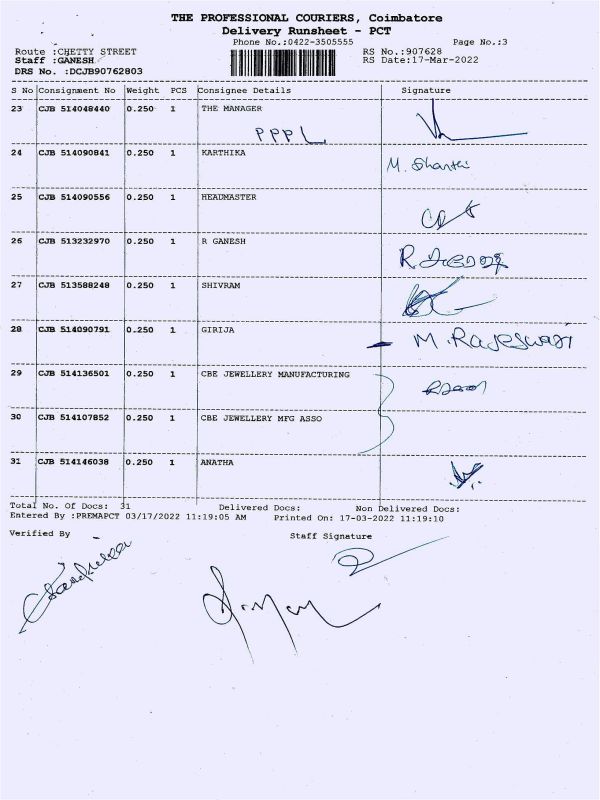 THE PROFESSIONAL COURIERS, Coimbatore
Delivery Runsheet - PCT
Phone No.:0422-3505555
Page No.:3
Route :CHETTY STREET
RS No.:907628
Staff :GANESH
RS Date:17-Mar-2022
DRS No. :DCJB90762803
S No Consignment No Weight PCS Consignee Details Signature
23 CJB 514048440 0.250 1 THE MANAGER
PPPL
24 CJB 514090841 0.250 1 KARTHIKA
M. Shanthi
25 CJB 514090556 0.250 1 HEADMASTER
26 CJB 513232970 0.250 1 R GANESH
27 CJB 513588248 0.250 1 SHIVRAM
28 CJB 514090791 0.250 1 GIRIJA
- M. Rajeswari
29 CJB 514136501 0.250 1 CBE JEWELLERY MANUFACTURING
30 CJB 514107852 0.250 1 CBE JEWELLERY MFG ASSO
31 CJB 514146038 0.250 1 ANATHA
Total No. Of Docs: 31 Delivered Docs: Non Delivered Docs:
Entered By :PREMAPCT 03/17/2022 11:19:05 AM Printed On: 17-03-2022 11:19:10
Verified By
Staff Signature